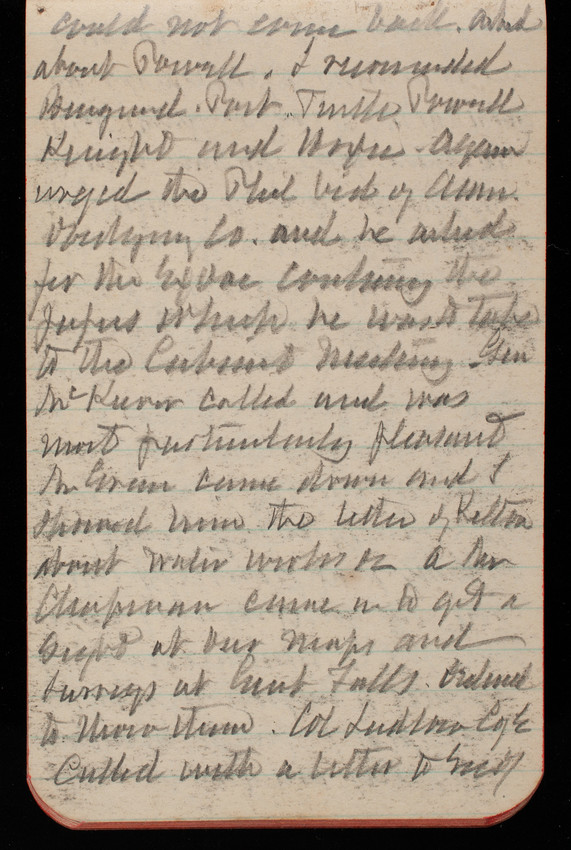 could not come back. asked
about Powell. I recommended
Post. Turtle Powell
Knight and again
urged the Phil bid of Am.
Co. and he asked
for the containing the
papers which he was to take
to the Cabinet Meeting. Gen
McKeever called and was
most particularly pleasant
Mr Green came down and I
showed him the letter of Kelton
about water works or a Mr
Chapman came in to get a
sight at our maps and
surveys at Great Falls. Ordered
to show them. Col Ludlow CofE
Called with a letter to